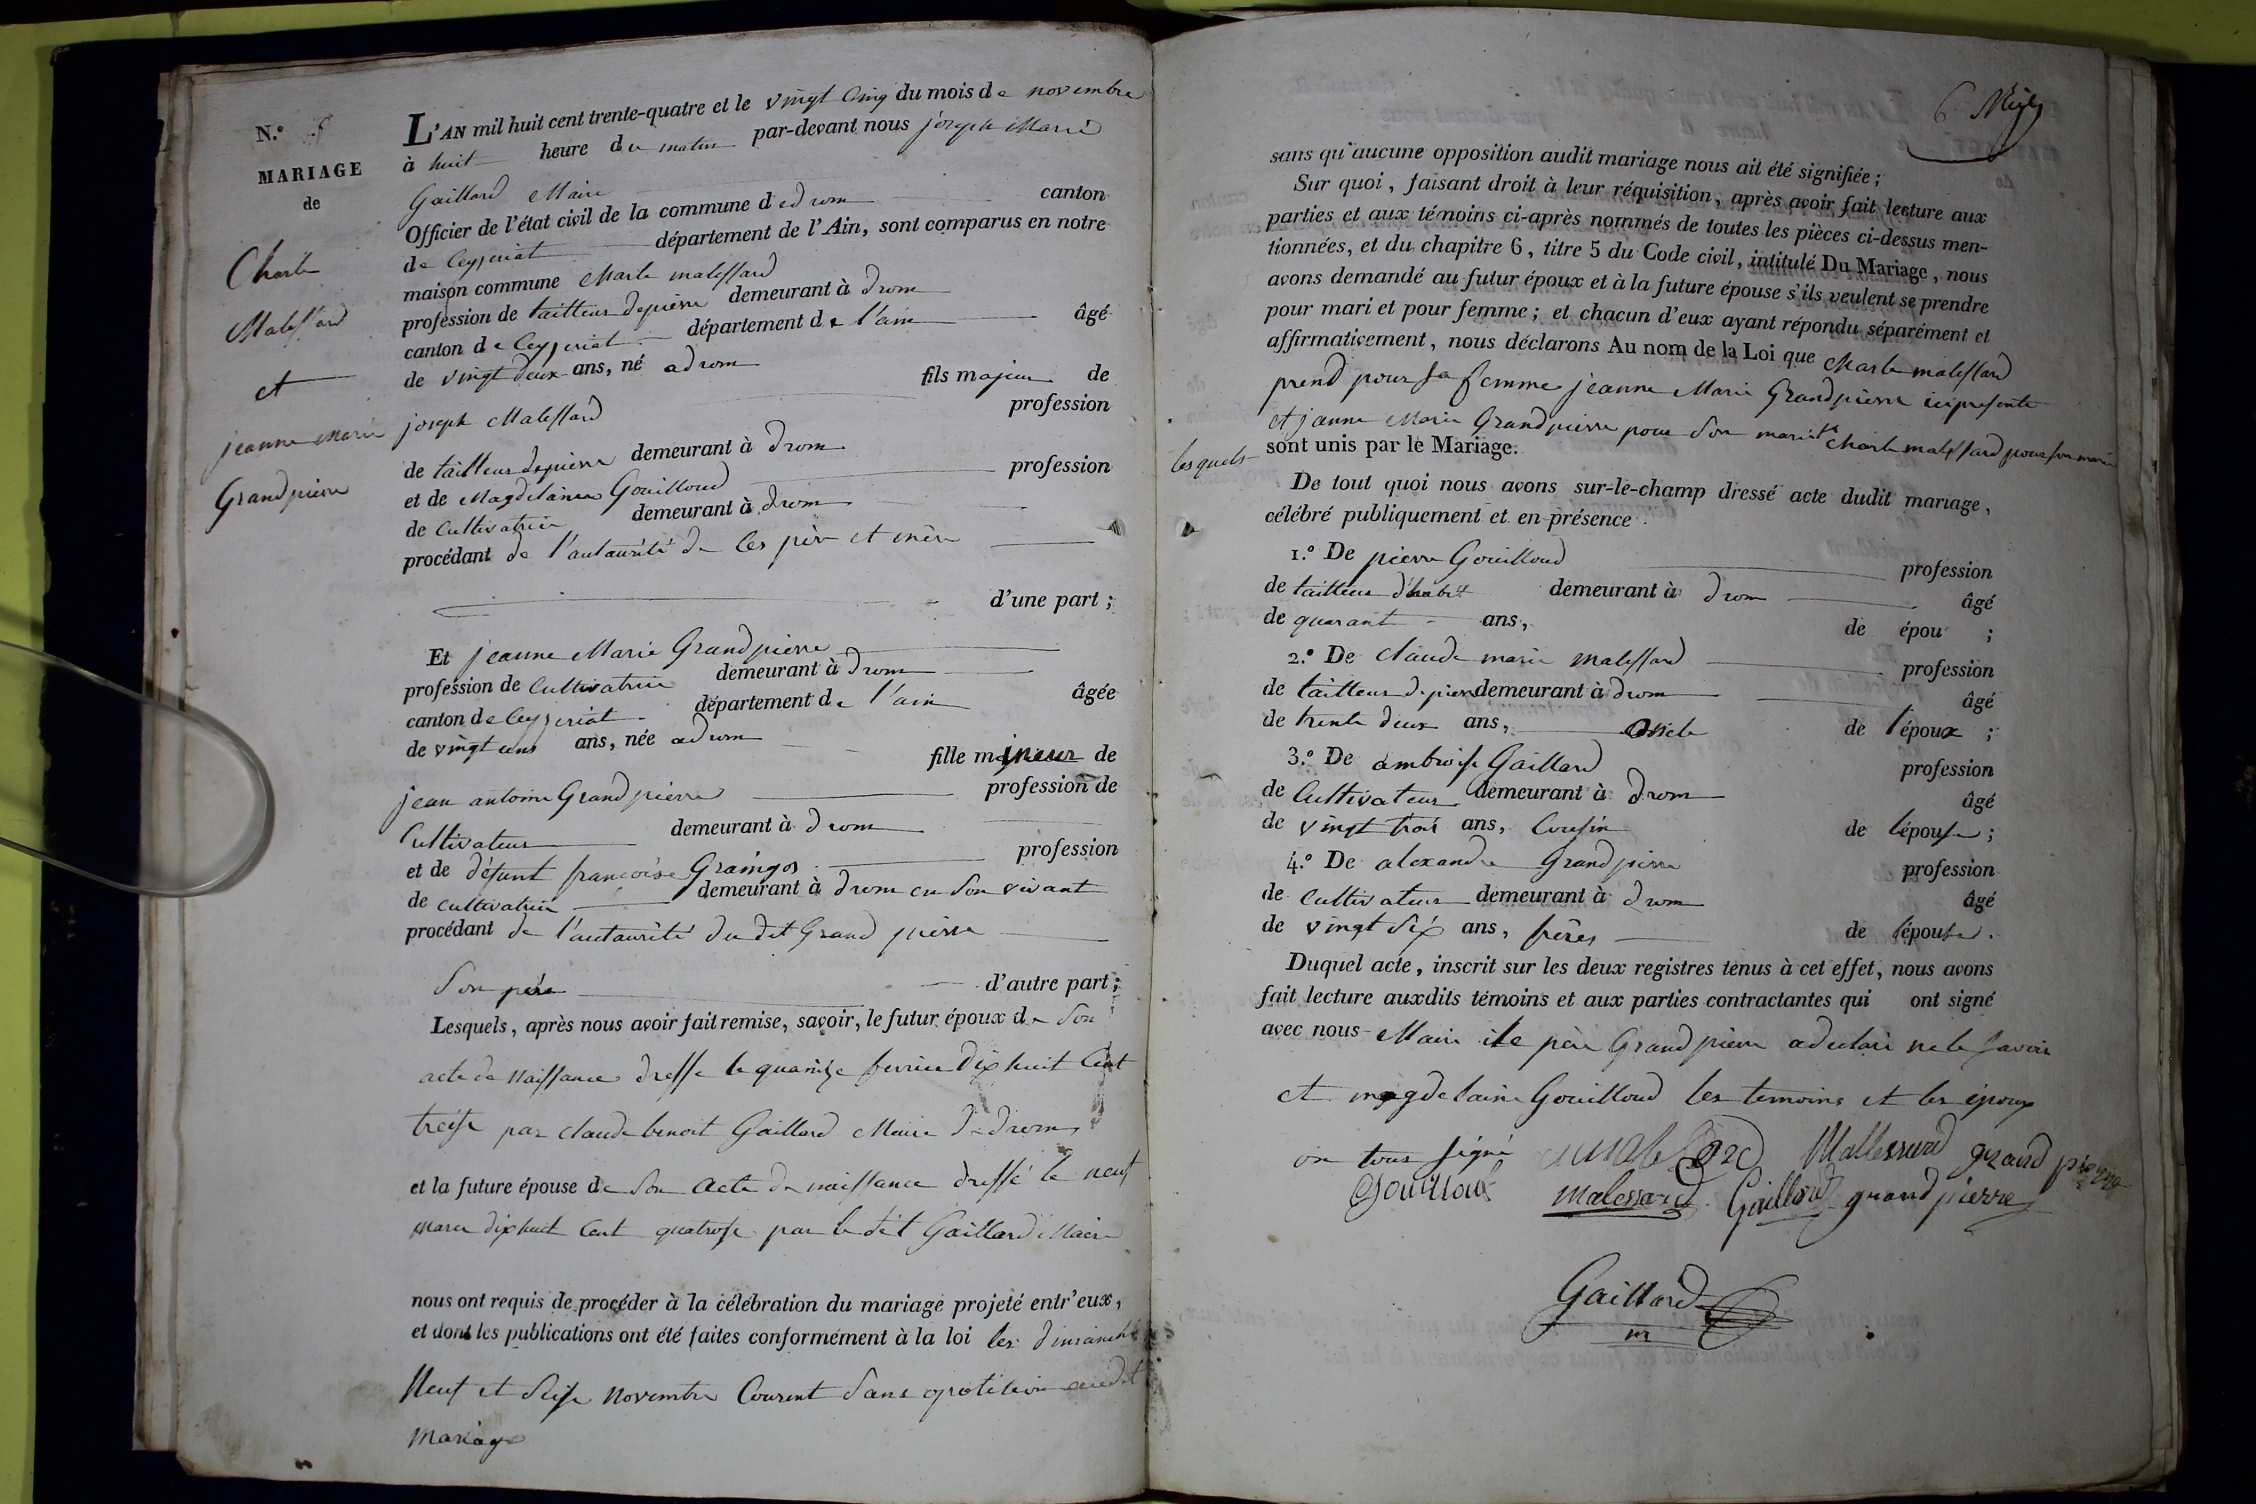 N.º 5
MARIAGE
de
Charle
Malessard
et
jeanne Marie
Grandpierre
L'AN mil huit cent trente-quatre et le vingt Cinq du mois de novembre
à huit heure du matin par-devant nous joseph Marie
Gaillard Maire
Officier de l'état civil de la commune d edrom canton
de Ceyseriat département de l'Ain, sont comparus en notre
maison commune Charle malessard
profession de tailleur depierre demeurant à drom
canton de Ceyseriat département de l'ain âgé
de vingt deux ans, né adrom
fils majeur de
joseph Malessard profession
de tailleur depierre demeurant à drom
et de Magdelaine Gouilloud profession
de Cultivatrice demeurant à drom
procédant de l'autaurité de Ces père et mère
d'une part ;
Et jeanne Marie Grandpierre
profession de Cultivatrice demeurant à drom
canton de Ceyseriat département de l'ain âgée
de vingt ans, née adrom
fille mineur de
jean antoine Grandpierre profession de
Cultivateur demeurant à drom
et de défunt françoise profession
de cultivatrice demeurant à drom en Son vivant
procédant de l'autaurité du dit Grand pierre
Son père d'autre part ;
Lesquels, après nous avoir fait remise, savoir, le futur époux de Son
acte de Naissance dresse le quainze fevrier Dix huit Cent
treise par claude benoit Gaillard Maire de drom
et la future épouse de Son acte de naissance dressé le neuf
mars dixhuit Cent quatrose par le dit Gaillard Maire
nous ont requis de procéder à la célébration du mariage projeté entr'eux,
et dont les publications ont été faites conformément à la loi les dimanche
Neuf et Seise Novembre Courent Sans opotition audit
Mariage
sans qu'aucune opposition audit mariage nous ait été signifiée ;
Sur quoi, faisant droit à leur réquisition, après avoir fait lecture aux
parties et aux témoins ci-après nommés de toutes les pièces ci-dessus men-
tionnées, et du chapitre 6, titre 5 du Code civil, intitulé Du Mariage, nous
avons demandé au futur époux et à la future épouse s'ils veulent se prendre
pour mari et pour femme ; et chacun d'eux ayant répondu séparément et
affirmativement, nous déclarons Au nom de la Loi que Charle malessard
prend pour sa femme jeanne Marie Grandpierre icipresente
et jeanne Marie Grandpierre pour Son mari Charle malessard pour son mari
lesquels sont unis par le Mariage.
De tout quoi nous avons sur-le-champ dressé acte dudit mariage,
célébré publiquement et en présence
1.º De pierre Gouilloud profession
de tailleur d'habit demeurant à drom âgé
de quarant ans, de épou ;
2.º De claude marie malessard profession
de tailleur depierre demeurant à drom âgé
de trente deux ans, oncle de l'époux ;
3.º De ambroise Gaillard profession
de Cultivateur demeurant à drom âgé
de vingt trois ans, Cousin de l'épouse ;
4.º De alexandre Grandpierre profession
de Cultivateur demeurant à drom âgé
de vingt Six ans, frères de l'épouse.
Duquel acte, inscrit sur les deux registres tenus à cet effet, nous avons
fait lecture auxdits témoins et aux parties contractantes qui ont signé
avec nous Maire le père Grandpierre adeclaré ne le savoir
et magdelaine Gouilloud les temoins et les époux
on tous signé Mallessard grand pierre
Gouilloud malessard Gaillard grand pierre
Gaillard
m